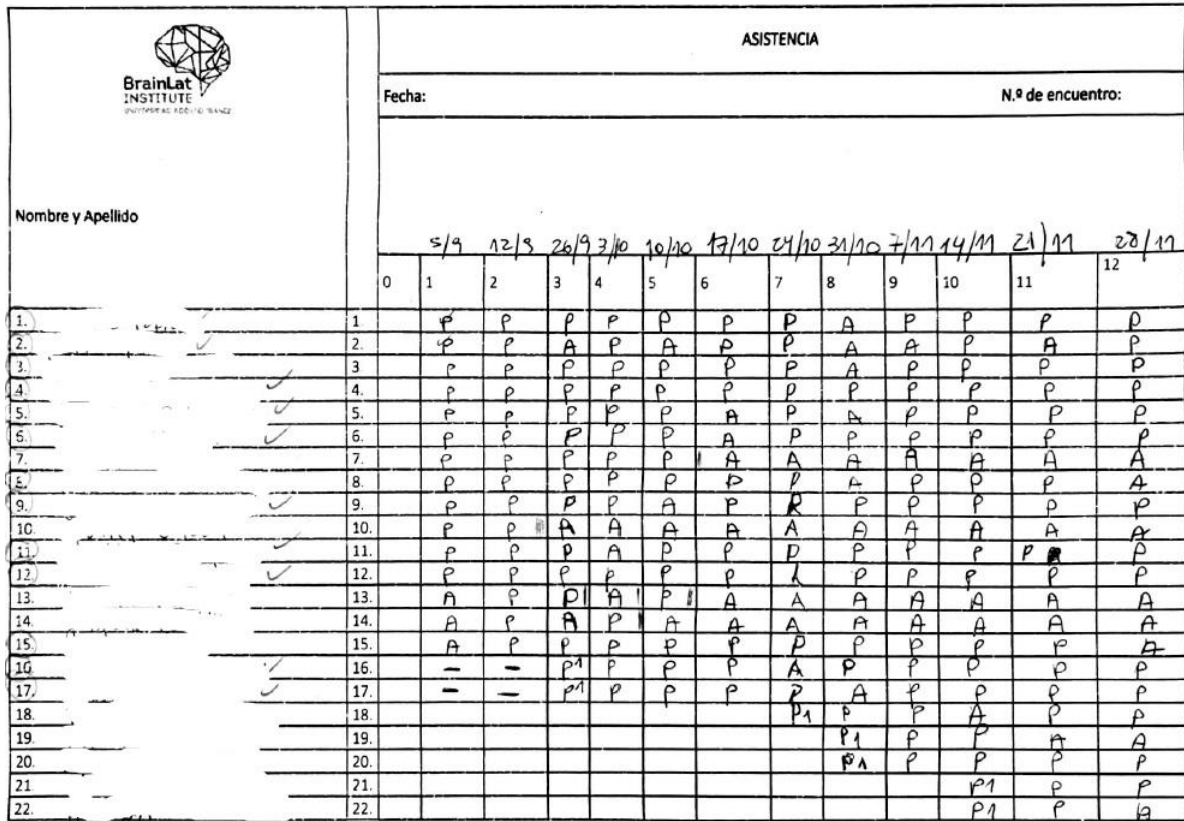 ASISTENCIA
BrainLat
INSTITUTE
Fecha: N.º de encuentro:
Nombre y Apellido
5/9 12/9 26/9 3/10 10/10 17/10 24/10 31/10 7/11 14/11 21/11 28/11
0 1 2 3 4 5 6 7 8 9 10 11 12
1. 1 P P P P P P P A P P P P
2. 2. P P A P A P P A A P A P
3. 3 P P P P P P P A P P P P
4. 4. P P P P P P P P P P P P
5. 5. P P P P P A P A P P P P
6. 6. P P P P P A P P P P P P
7. 7. P P P P P A A A A A A A
8. 8. P P P P P P P A P P P A
9. 9. P P P P A P P P P P P
10. 10. P P A A A A A A A A A A
11. 11. P P P A P P P P P P P P
12. 12. P P P P P P P P P P P
13. 13. A P P A P A A A A A A A
14. 14. A P A P A A A A A A A A
15. 15. A P P P P P P P P P P A
16. 16. – – P1 P P P A P P P P P
17. 17. – – P1 P P P P A P P P P
18. 18. P1 P P A P P
19. 19. P1 P P A A
20. 20. P1 P P P P
21 21. P1 P P
22. 22. P1 P A